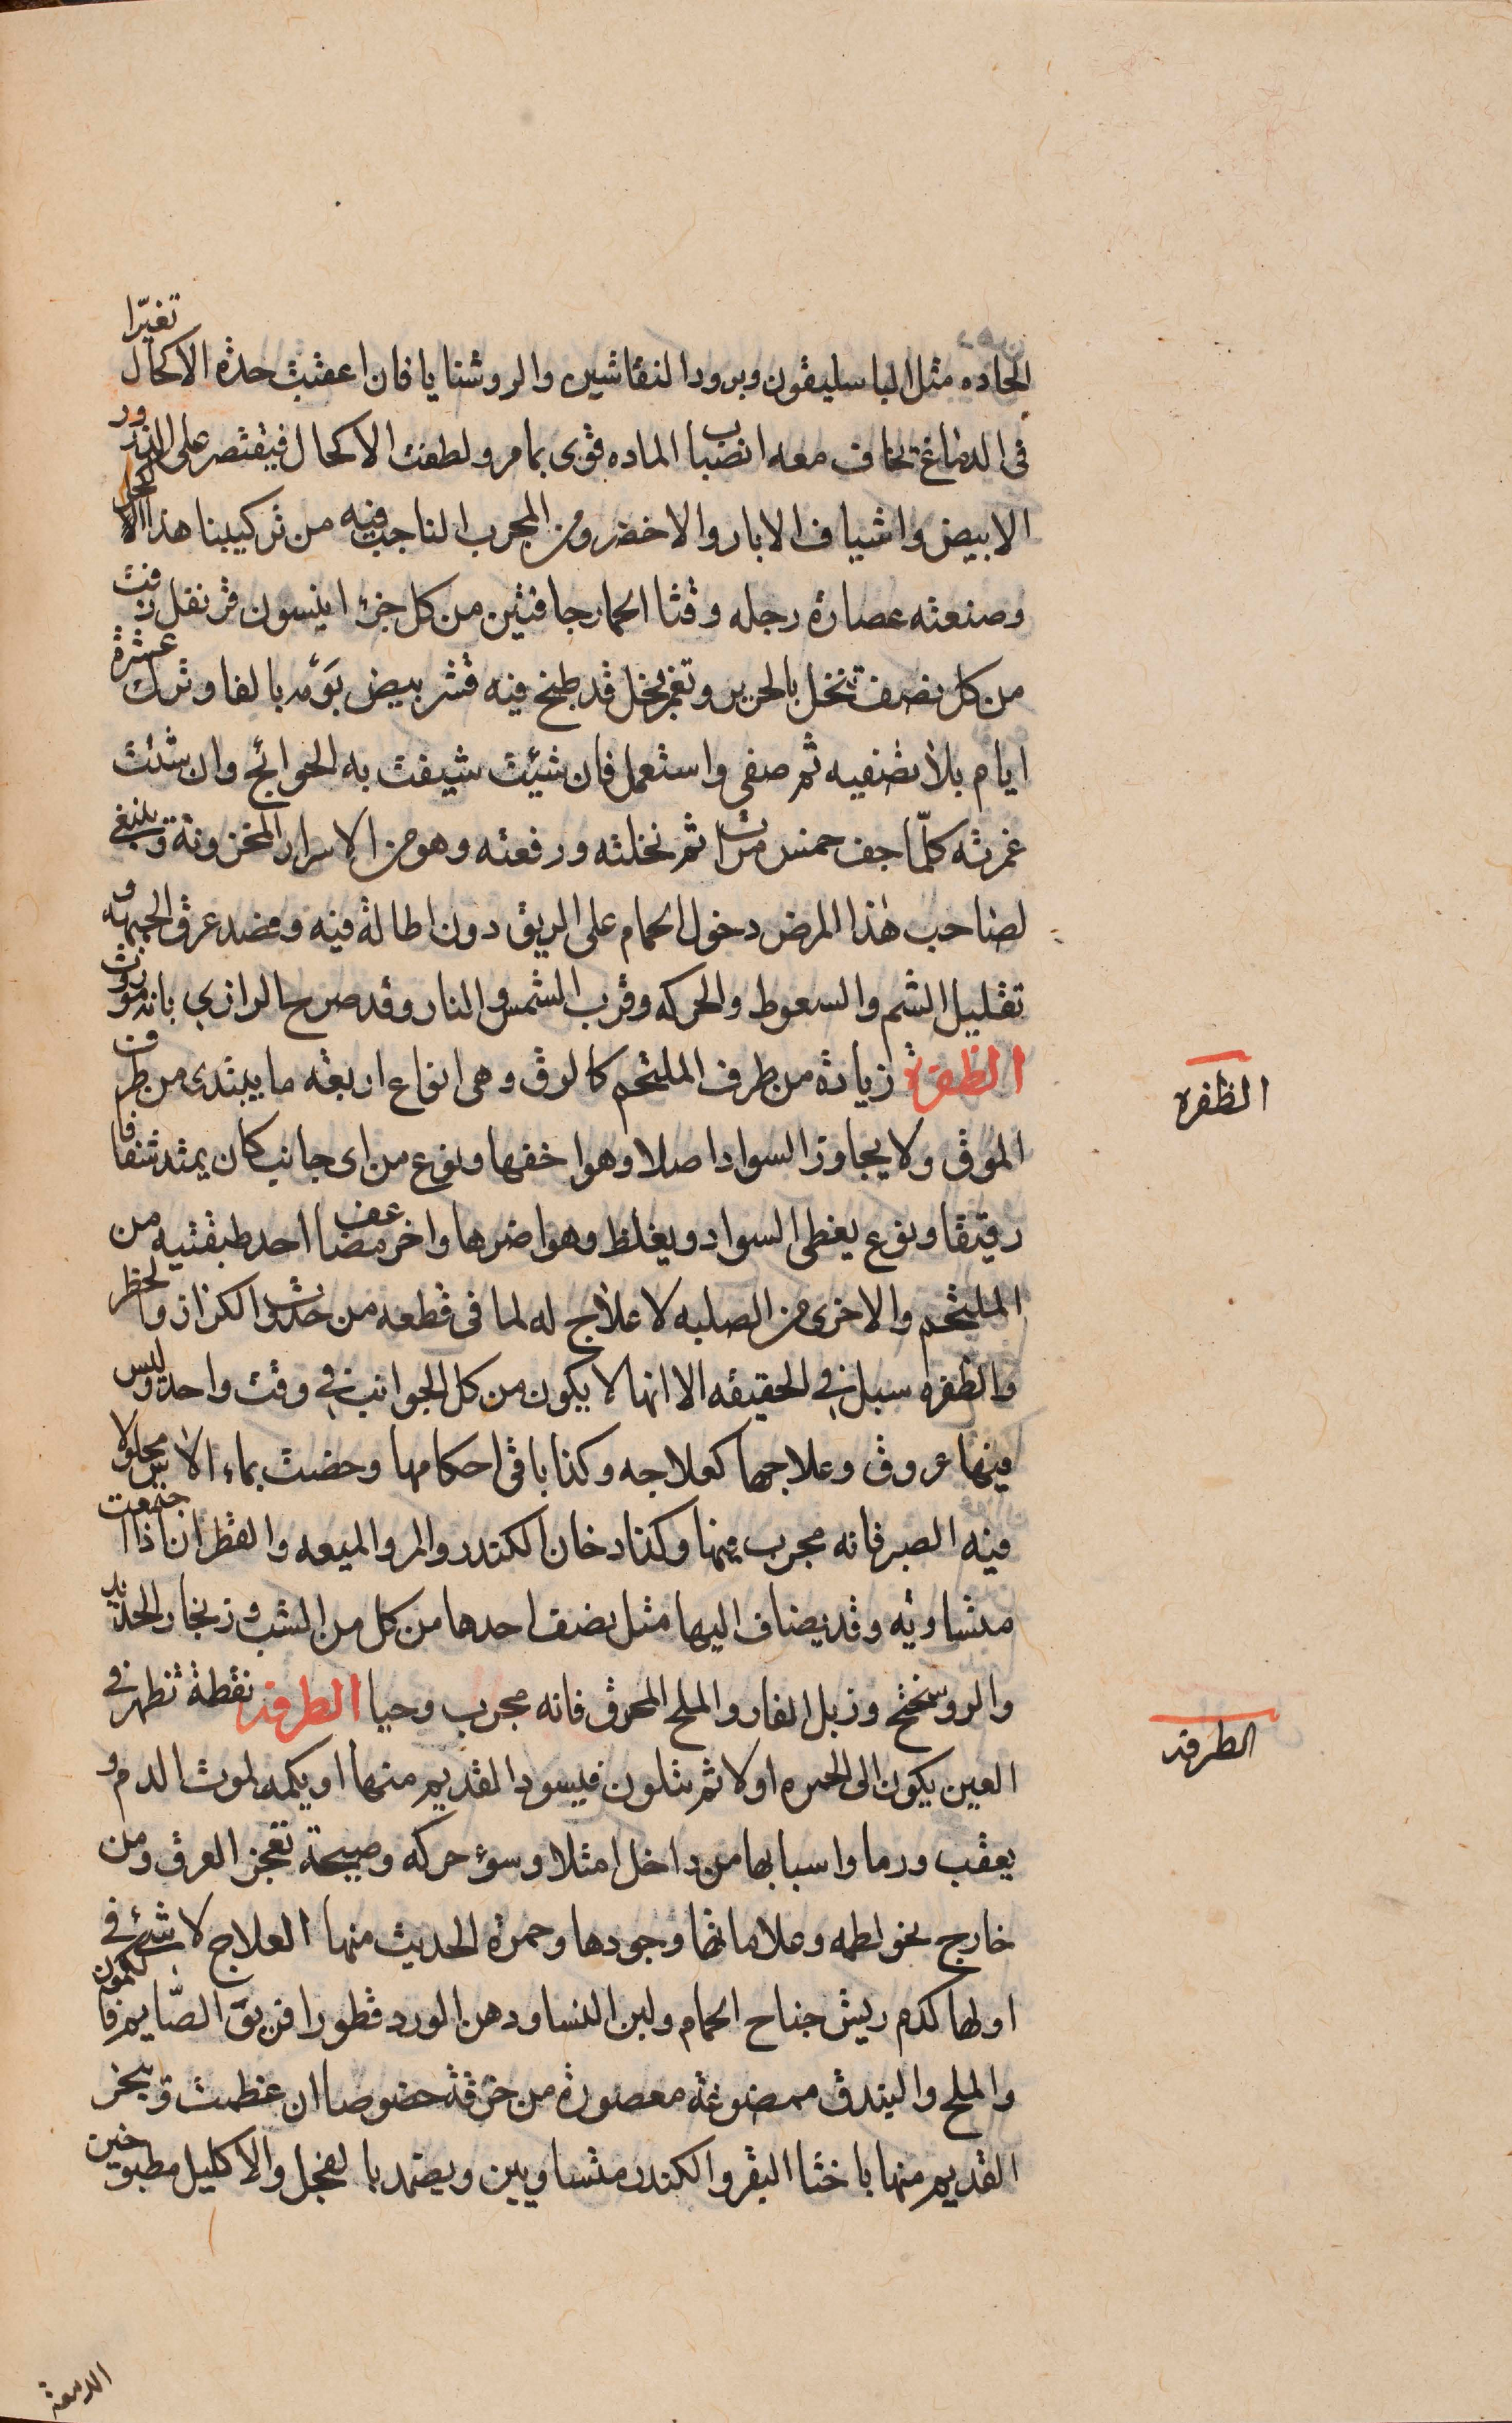 الحاده مثل الباسليقون وبرود النقاشين والروشنايا فان اعقبت حدة الاكحال تغيرا
فى الدماغ تخاف معه انصباب الماده قوى بما مر ولطفت الاكحال فيقتصر على الذرور
الابيض واشياف الابار والاخضر ومن المجرب الناجب فيه من تركيبنا هذا الاكحل
وصنعته عصارة رجله وقثا الحمار جافتين من كل جزء اينسون قرنفل زفت
من كل نصف تنخل بالحرير وتغمر بخل قد طبخ فيه قشر بيض يومه بالغا وترك عشرة
ايام بلا تصفيه ثم صفى واستعمل فان شيئت شيفت به الحوائج وان شئت
غمرته كلّما جف خمس مرات ثم نخلته ورفعته وهو من الاسرار المخزونة وينبغى
لصاحب هذا المرض دخول الحمام على الريق دون اطالة فيه وفصد عرق الجبهة و
تقليل الشم والسعوط والحركه وقرب الشمس والنار وقد صرح الرازي بانه موروث
الظفرة زيادة من طرف الملتحم كالورق وهى انواع اربعة ما يبتدى من طرف
الموق ولا يجاوز السواد اصلا وهو اخفها ونوع من اى جانب كان يمتد شفافا
رقيقا ونوع يغطى السواد ويغلظ وهو اضرها واخر مضاعف احد طبقتيه من
الملتحم والاخرى من الصلبه لا علاج له لما فى قطعه من حدث الكزاز والخطر
والظفره سبل في الحقيقه الا انها لا يكون من كل الجوانب في وقت واحد وليس
فيها عروق وعلاجها كعلاجه وكذا باقى احكامها وخصت بماء الاس محلولا
فيه الصبر فانه مجرب فيها وكذا دخان الكندر والمر والميعه والقطران اذا اجتمعت
متساويه وقد يضاف اليها مثل نصف احدها من كل من الشب وزنجار الحديد
والروسختج وزبل الفار والملح المحرق فانه مجرب وحيا الطرفه نقطة تظهر في
العين يكون الى الحمره اولا ثم تتلون فيسود القديم منها او يكمد لموت الدم و
يعقب ورما واسبابها من داخل امتلا وسوء حركه وصيحة تفجر العرق ومن
خارج نحو لطمه وعلاماتها وجودها وحمرة الحديث منها العلاج لا شئ في
اولها كدم ريش جناح الحمام ولبن النسا ودهن الورد قطورا فريق الصّايم فالكمون
والملح والبندق ممضوغة معصورة من خرقة خصوصا ان عظمت ويبخر
القديم منها باخثا البقر والكندر متساويين ويضمد بالفجل والاكليل مطبوخين
الظفره
الطرفه
الدمعة